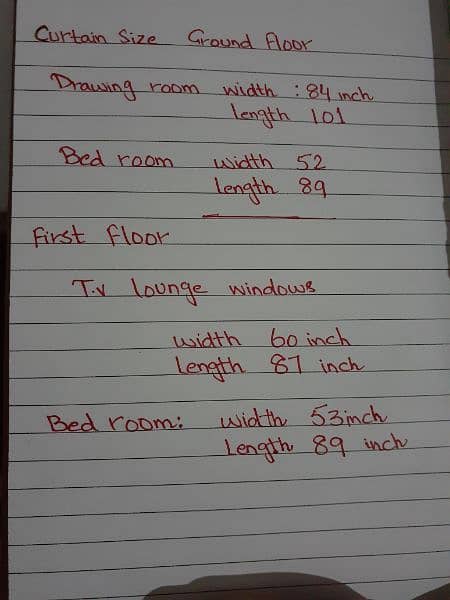 Curtain Size Ground Floor
Drawing room width : 84 inch
length 101
Bed room width 52
length 89
First Floor
T.v lounge windows
width 60 inch
Length 87 inch
Bed room: width 53inch
Length 89 inch